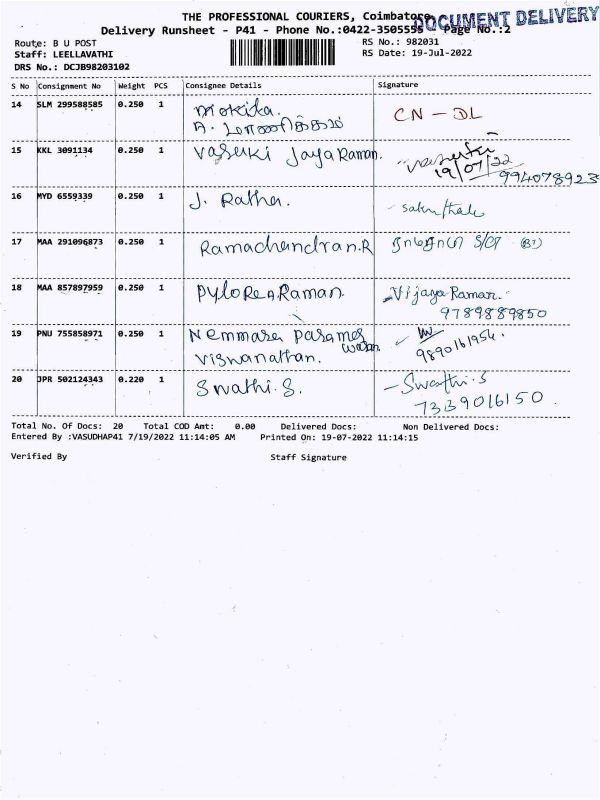 THE PROFESSIONAL COURIERS, Coimbatore
DOCUMENT DELIVERY
Delivery Runsheet - P41 - Phone No.:0422-3505555 - Page No.:2
Route: B U POST
RS No.: 982031
Staff: LEELLAVATHI
RS Date: 19-Jul-2022
DRS No.: DCJB98203102
S No Consignment No Weight PCS Consignee Details Signature
14 SLM 299588585 0.250 1 Mokita. CN - DL
A. மாணிக்கம்
15 KKL 3091134 0.250 1 Vasuki JayaRaman. Vasuki
19/07/22
994078923
16 MYD 6559339 0.250 1 J. Ratha.
17 MAA 291096873 0.250 1 Ramachandran.R
18 MAA 857897959 0.250 1 PyloreA.Raman. Vijaya Raman.
9789889850
19 PNU 755858971 0.250 1 Nemmara Parames
waran
Viswanathan. 9890161954.
20 JPR 502124343 0.220 1 Swathi.S. - Swathi.S
7339016150.
Total No. Of Docs: 20 Total COD Amt: 0.00 Delivered Docs: Non Delivered Docs:
Entered By :VASUDHAP41 7/19/2022 11:14:05 AM Printed On: 19-07-2022 11:14:15
Verified By Staff Signature